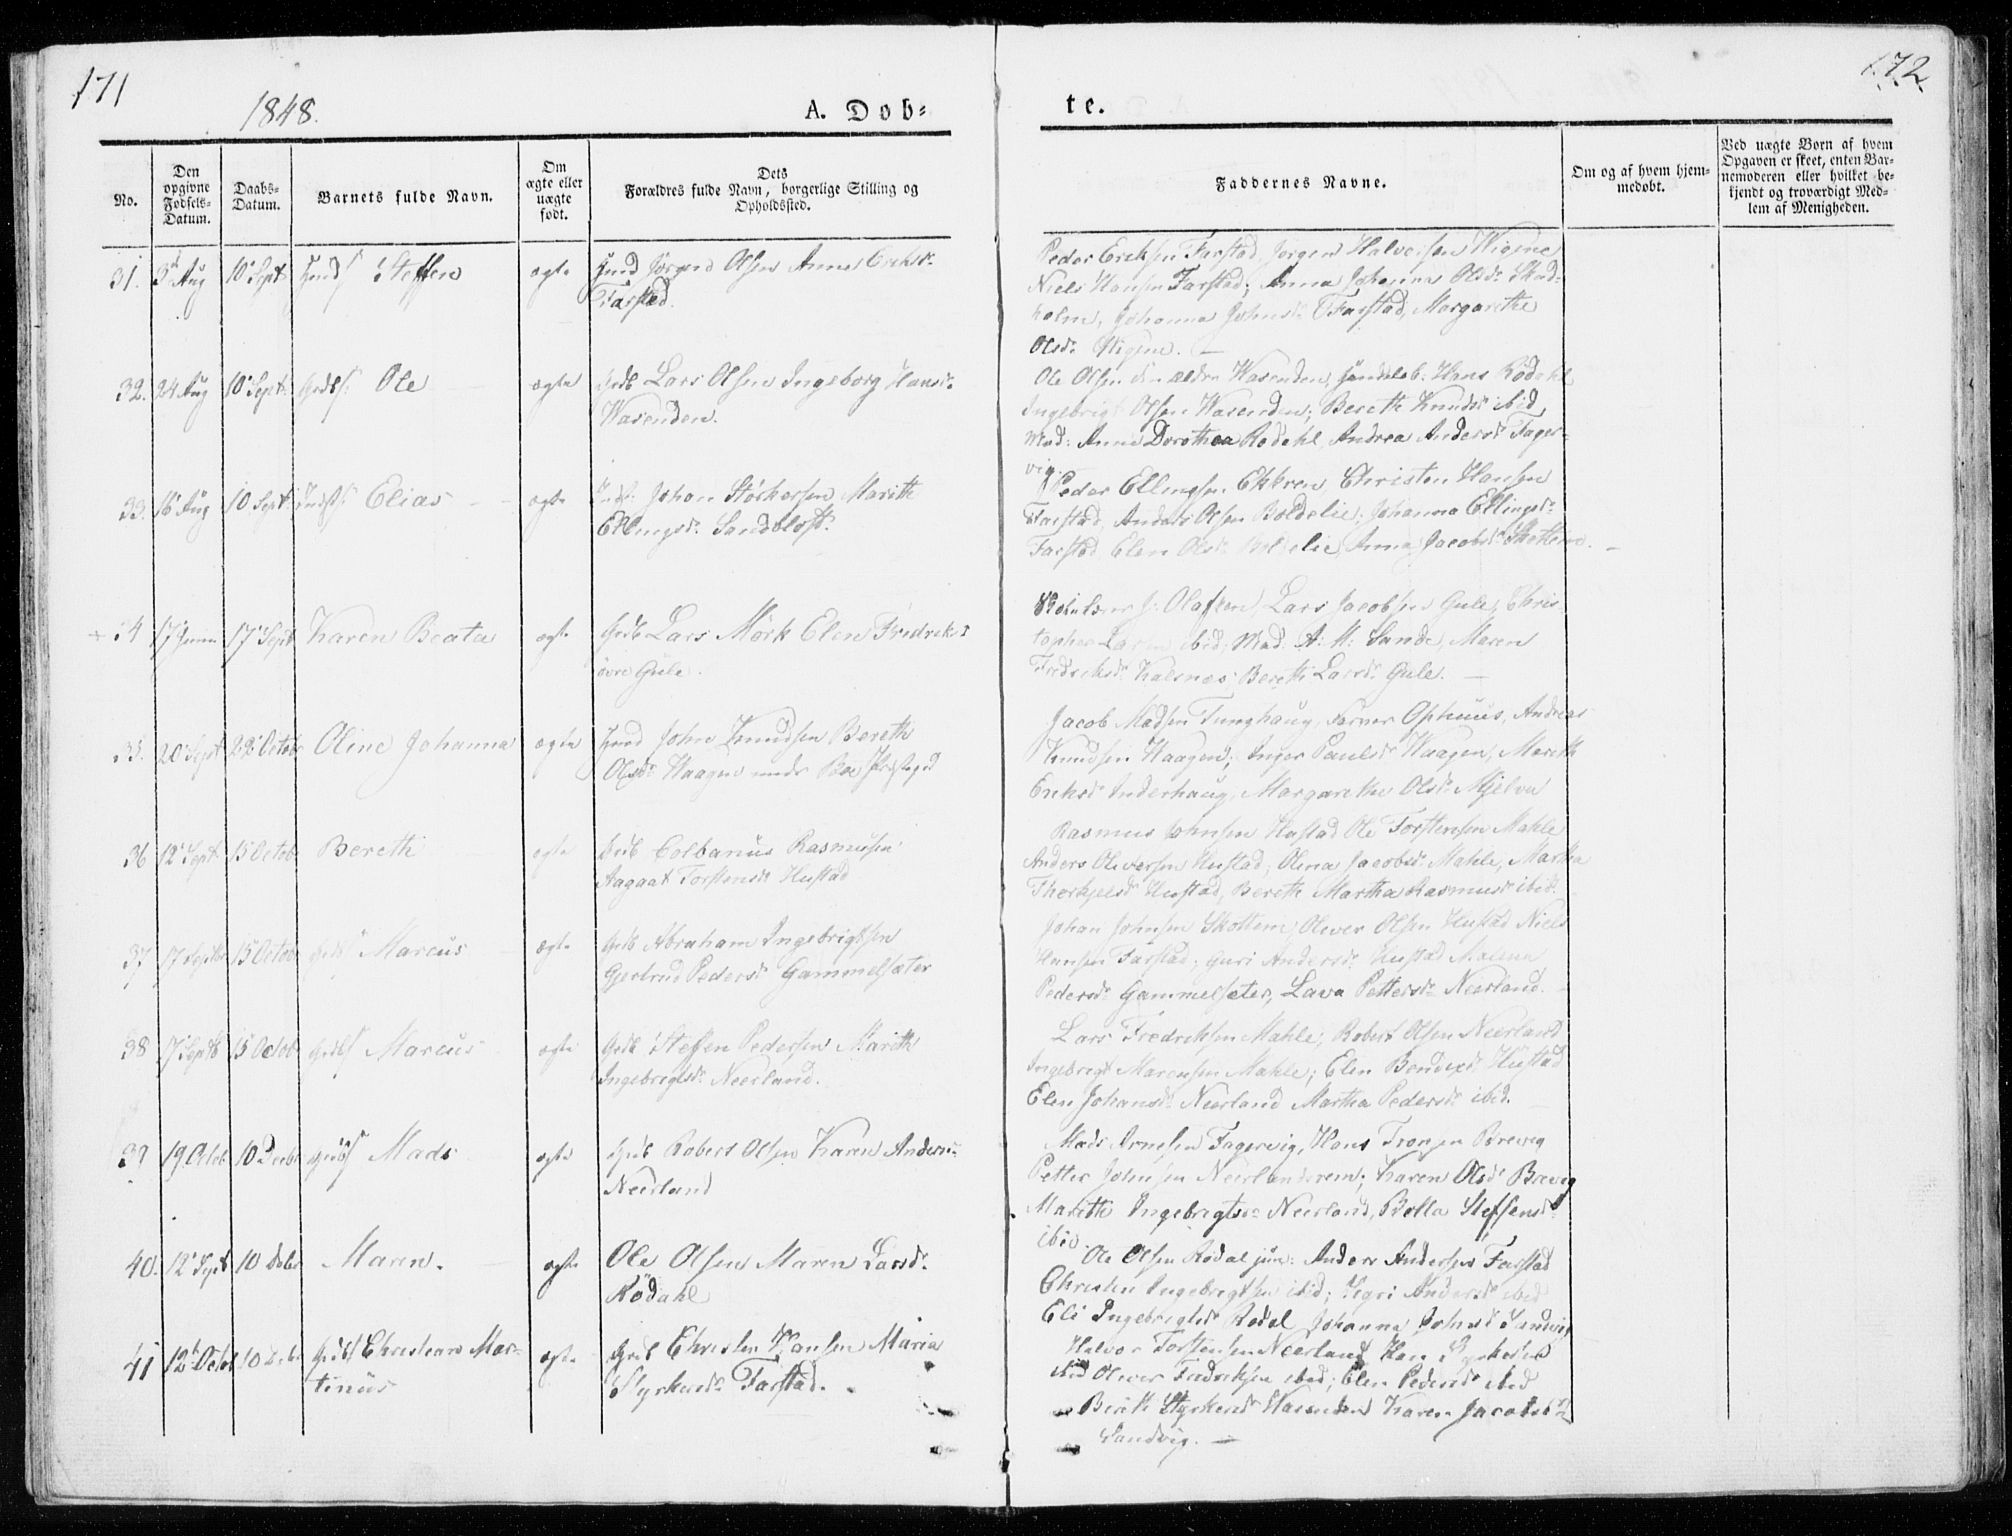 171
1848.
A. Døb-
te.
172
No.
Den
opgivne
Fødsels-
Datum.
Daabs-
Datum.
Barnets fulde Navn.
Om
ægte eller
uægte
født.
Dets
Forældres fulde Navn, borgerlige Stilling og
Opholdssted.
Faddernes Navne.
Om og af hvem hjem-
medøbt.
Ved uægte Børn af hvem
Opgaven er skeet, enten Bar-
nemoderen eller hvilket be-
kjendt og troværdigt Med-
lem af Menigheden.
31. 3 Aug 10 Sept Steffen ægte Jørgen Olsen Anne Eriksdr
Farstad.
Peder Eriksen Farstad, Jørgen Halvorsen Wigene
Niels Hansen Farstad; Anna Johanna Olsdr Skad-
holm, Johanna Johnsdr Farstad, Margarethe
Olsdr Wigene.
32. 24 Aug 10 Sept Ole ægte Grdb Lars Olsen Ingeborg Hansdr
Wasenden.
Ole Olsen den ældre Wasenden, Hans Rødahl
Ingebrigt Olsen Wasenden; Bereth Knudsdr ibid,
Mad: Anne Dorothea Rødahl, Andrea Andersdr Fager-
vig.
33. 16 Aug 10 Sept Elias ægte Johan Størkersen Marith
Ellingsdr Sandblost
Peder Ellingsen Ekkren, Christen Hansen
Farstad, Anders Olsen Boldelie; Johanna Ellingsdr
Farstad Elen Olsdr Boldelie, Anna Jacobsdr Skottem.
+ 34 17 Juni 17 Sept Karen Beata ægte Grdb Lars Mørk Elen Fredreksd
øvre Gule.
J: Olafsen, Lars Jacobsen Gule, Chris
topher Larsen ibid; Mad. A: M: Sande, Maren
Fredreksdr Kalsnes Bereth Larsdr Gule.
35. 20 Sept 22 Octob Oline Johanna ægte John Knudsen Bereth
Olsdr Haagen under Præstegd
Jacob Madsen Tunghaug, Farner Ophuus, Andreas
Knudsen Haagen; Inger Paulsdr Haagen, Marith
Eriksdr Inderhaug, Margarethe Olsdr Mjelva
36 12 Sept 15 Octob Bereth ægte Grdb Colbanus Rasmusen
Aagaat Torstensdr Hustad
Rasmus Johnsen Hustad Ole Torstensen Mahle
Anders Oliversen Hustad; Olina Jacobsdr Mahle, Martha
Thorkjelsdr Hustad, Bereth Martha Rasmusdr ibid.
37 17 Septb 15 Octob Marcus ægte Grdb Abraham Ingebrigtsen
Gjertrud Pedersdr Gammelsæter
Johan Johnsen Skottem, Oliver Olsen Hustad Niels
Hansen Farstad; Guri Andersdr Hustad Malena
Pedersdr Gammelsæter, Lava Pettersdr Neerland.
38 17 Septb 15 Octob Marcus ægte Grdb Steffen Pedersen Marith
Ingebrigtsdr Neerland.
Lars Fredreksen Mahle; Robert Olsen Neerland
Ingebrigt Marcusen Mahle; Elen Bendixdr Hustad
Elen Johansdr Neerland Martha Pedersdr ibid.
39 19 Octob 10 Decbr Mads ægte Grdb Robert Olsen Karen Andersdr
Neerland
Mads Arnesen Fagervig, Hans Tronsen Brevig
Petter Johnsen Neerlandsrem; Karen Olsdr Brevig
Marith Ingebrigtsdr Neerland, Bolla Steffensdr
ibid
40. 12 Sept 10 Decbr Maren. ægte Ole Olsen Maren Larsdr
Rødahl
Ole Olsen Rødal jun: Anders Andersen Farstad
Christen Ingebrigtsen ibid; Sigri Andersdr ibid
Eli Ingebrigtsdr Rødal Johanna Johnsdr Sandvig
41 12 Octob 10 Decbr Christian Mar-
tinus ægte Grdb Christen Hansen Maria
Styrkersdr Farstad.
Halvor Torstensen Neerland Hans Styrkersen
ibid Oliver Fredreksen ibid; Elen Pedersdr ibid
Bereth Styrkersdr Wasenden Karen Jacobsdr
Sandvig.